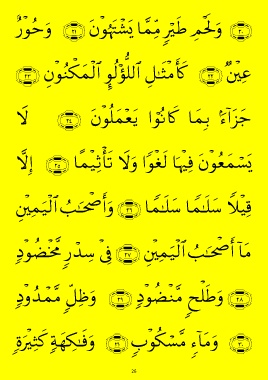 ٢٠ وَلَحْمِ طَيْرٍ مِّمَّا يَشْتَهُونَ ٢١ وَحُورٌ
عِينٌ ٢٢ كَأَمْثَـٰلِ ٱللُّؤْلُؤِ ٱلْمَكْنُونِ ٢٣
جَزَآءًۢ بِمَا كَانُوا۟ يَعْمَلُونَ ٢٤ لَا
يَسْمَعُونَ فِيهَا لَغْوًا وَلَا تَأْثِيمًا ٢٥ إِلَّا
قِيلًا سَلَـٰمًا سَلَـٰمًا ٢٦ وَأَصْحَـٰبُ ٱلْيَمِينِ
مَآ أَصْحَـٰبُ ٱلْيَمِينِ ٢٧ فِى سِدْرٍ مَّخْضُودٍ
٢٨ وَطَلْحٍ مَّنضُودٍ ٢٩ وَظِلٍّ مَّمْدُودٍ
٣٠ وَمَآءٍ مَّسْكُوبٍ ٣١ وَفَـٰكِهَةٍ كَثِيرَةٍ